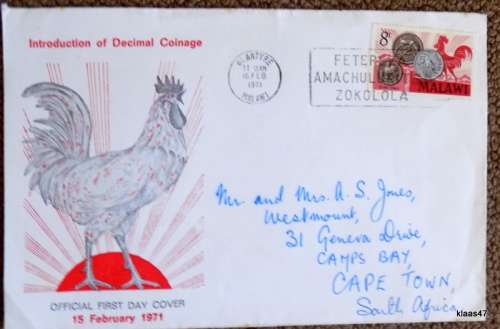 Introduction of Decimal Coinage
BLANTYRE
11 30AM
15 FEB
1971
MALAWI
FETEREZA
AMACHULUKITSA
ZOKOLOLA
8t
MALAWI
Mr. and Mrs. A. S. Jones,
Westmount,
31 Geneva Drive,
CAMPS BAY,
CAPE TOWN,
South Africa
OFFICIAL FIRST DAY COVER
15 February 1971
klaas47